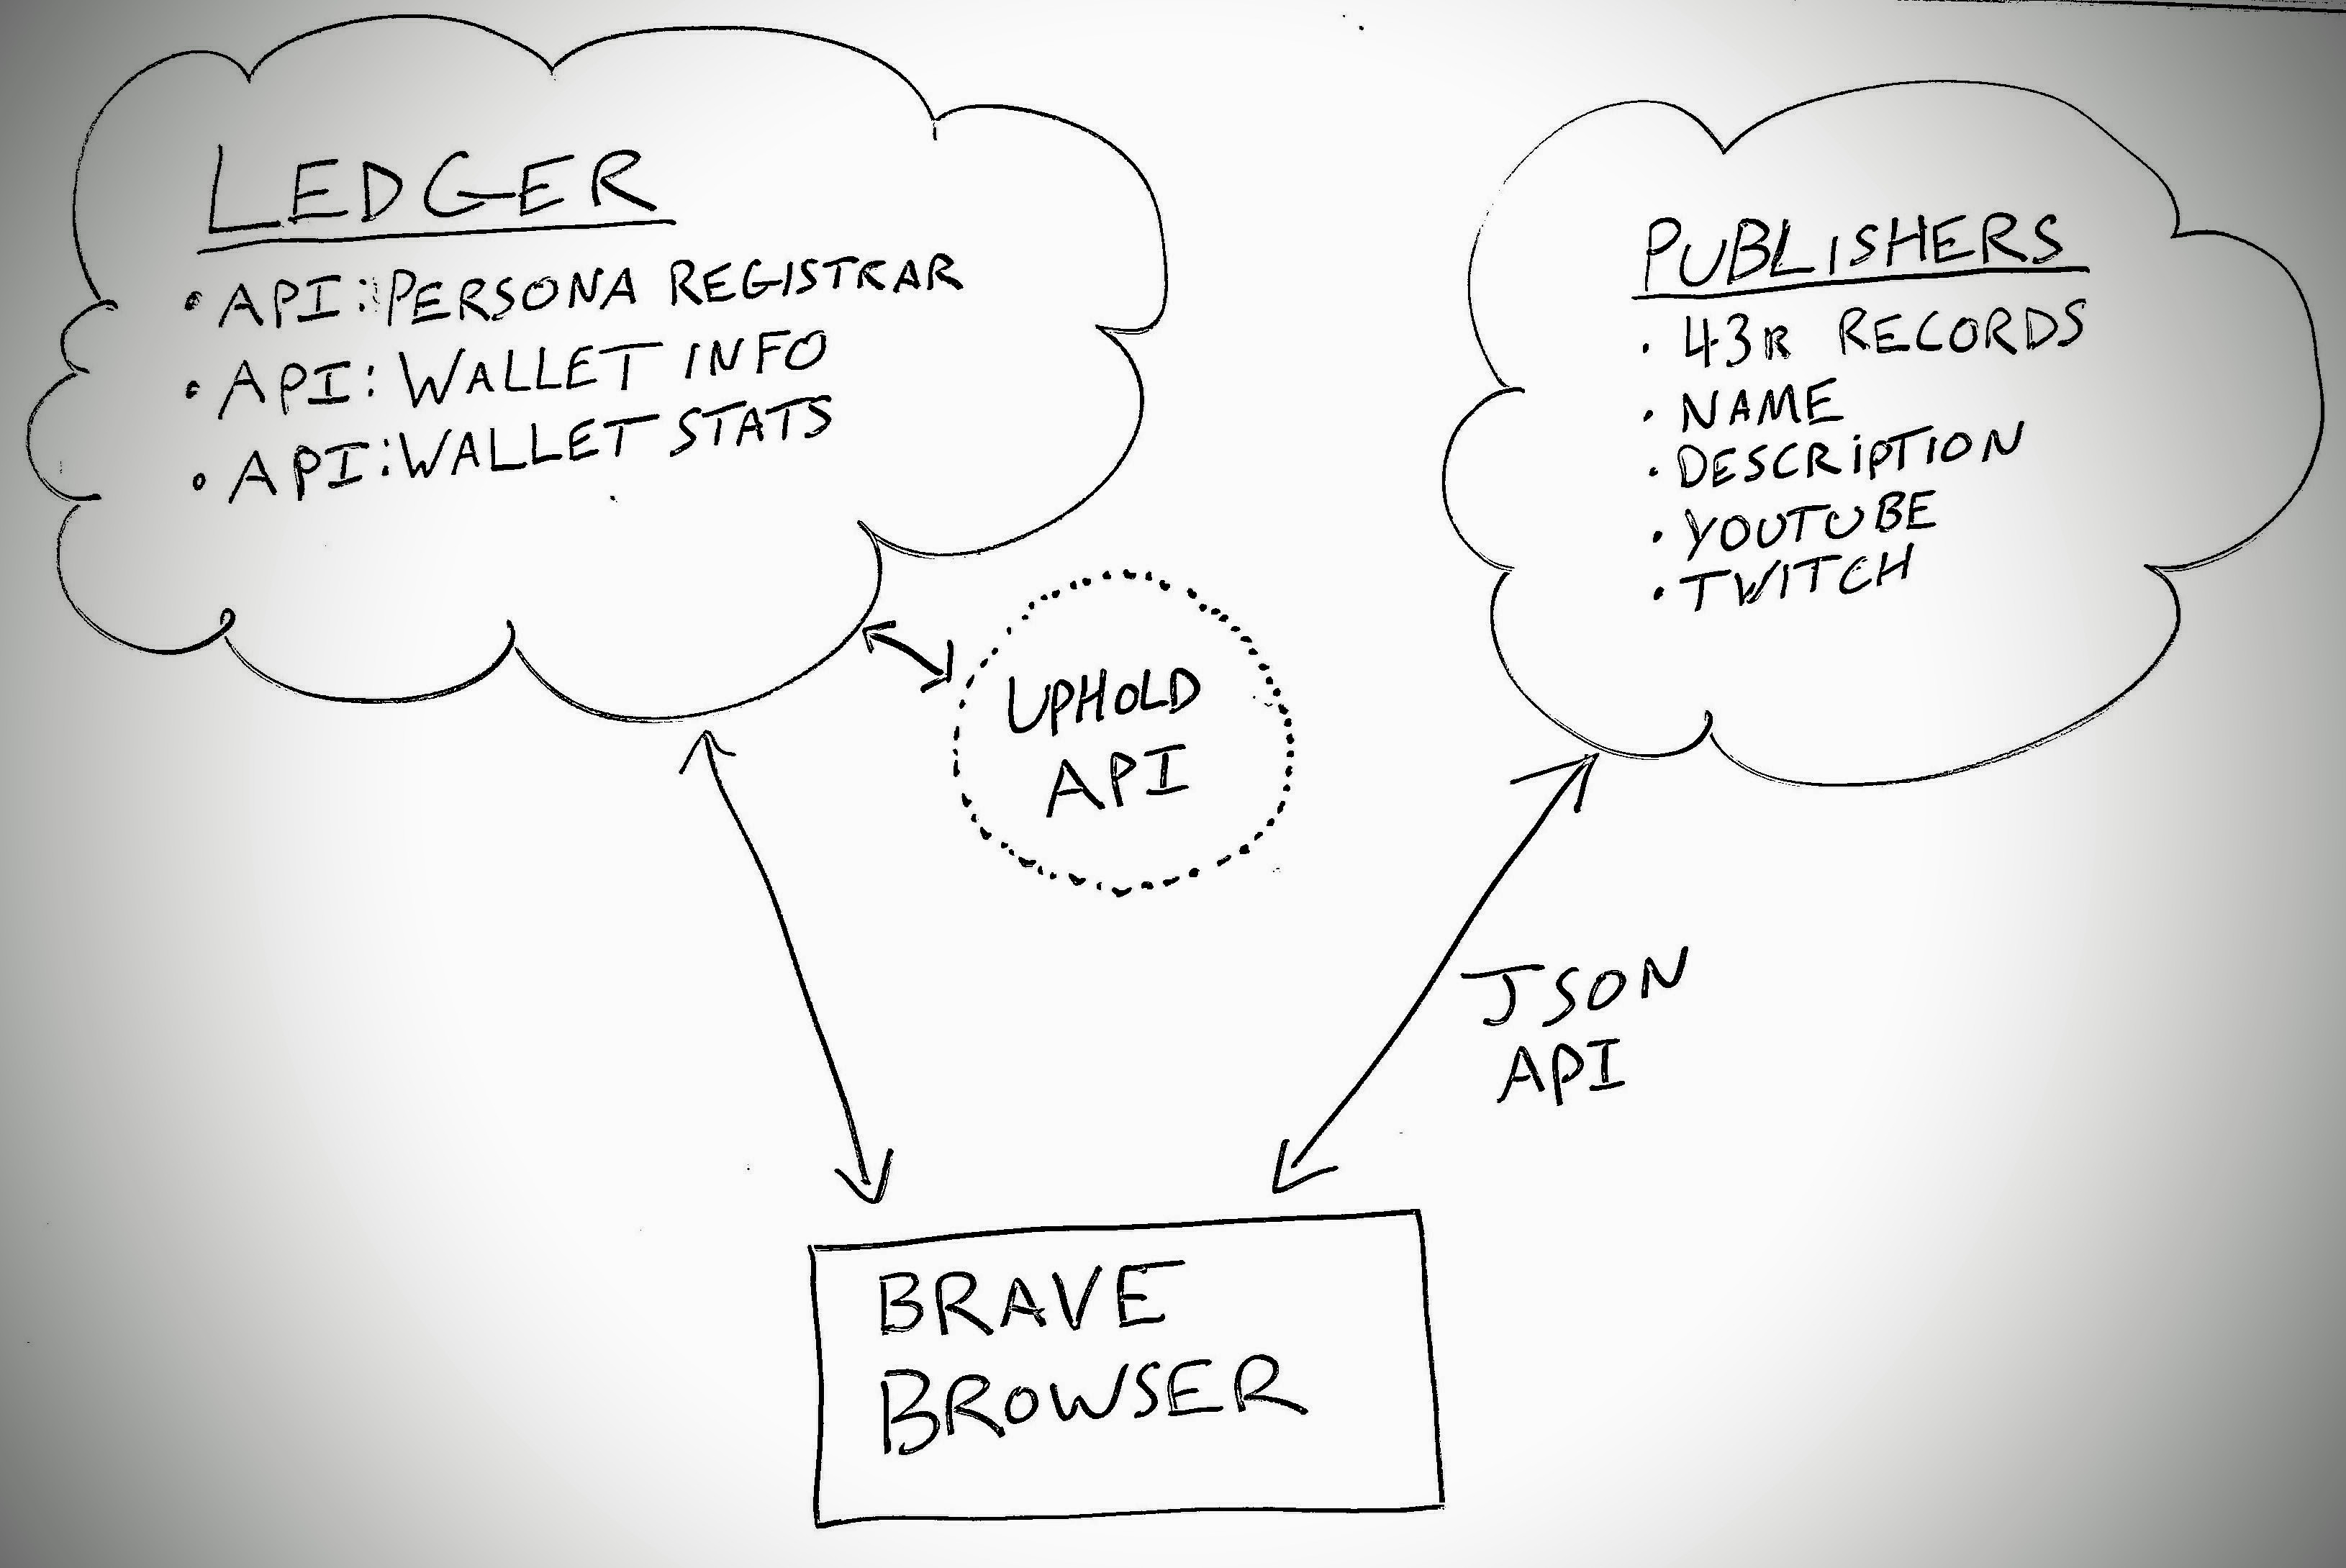 LEDGER
• API: PERSONA REGISTRAR
• API: WALLET INFO
• API: WALLET STATS
PUBLISHERS
• 43R RECORDS
• NAME
• DESCRIPTION
• YOUTUBE
• TWITCH
UPHOLD
API
JSON
API
BRAVE
BROWSER